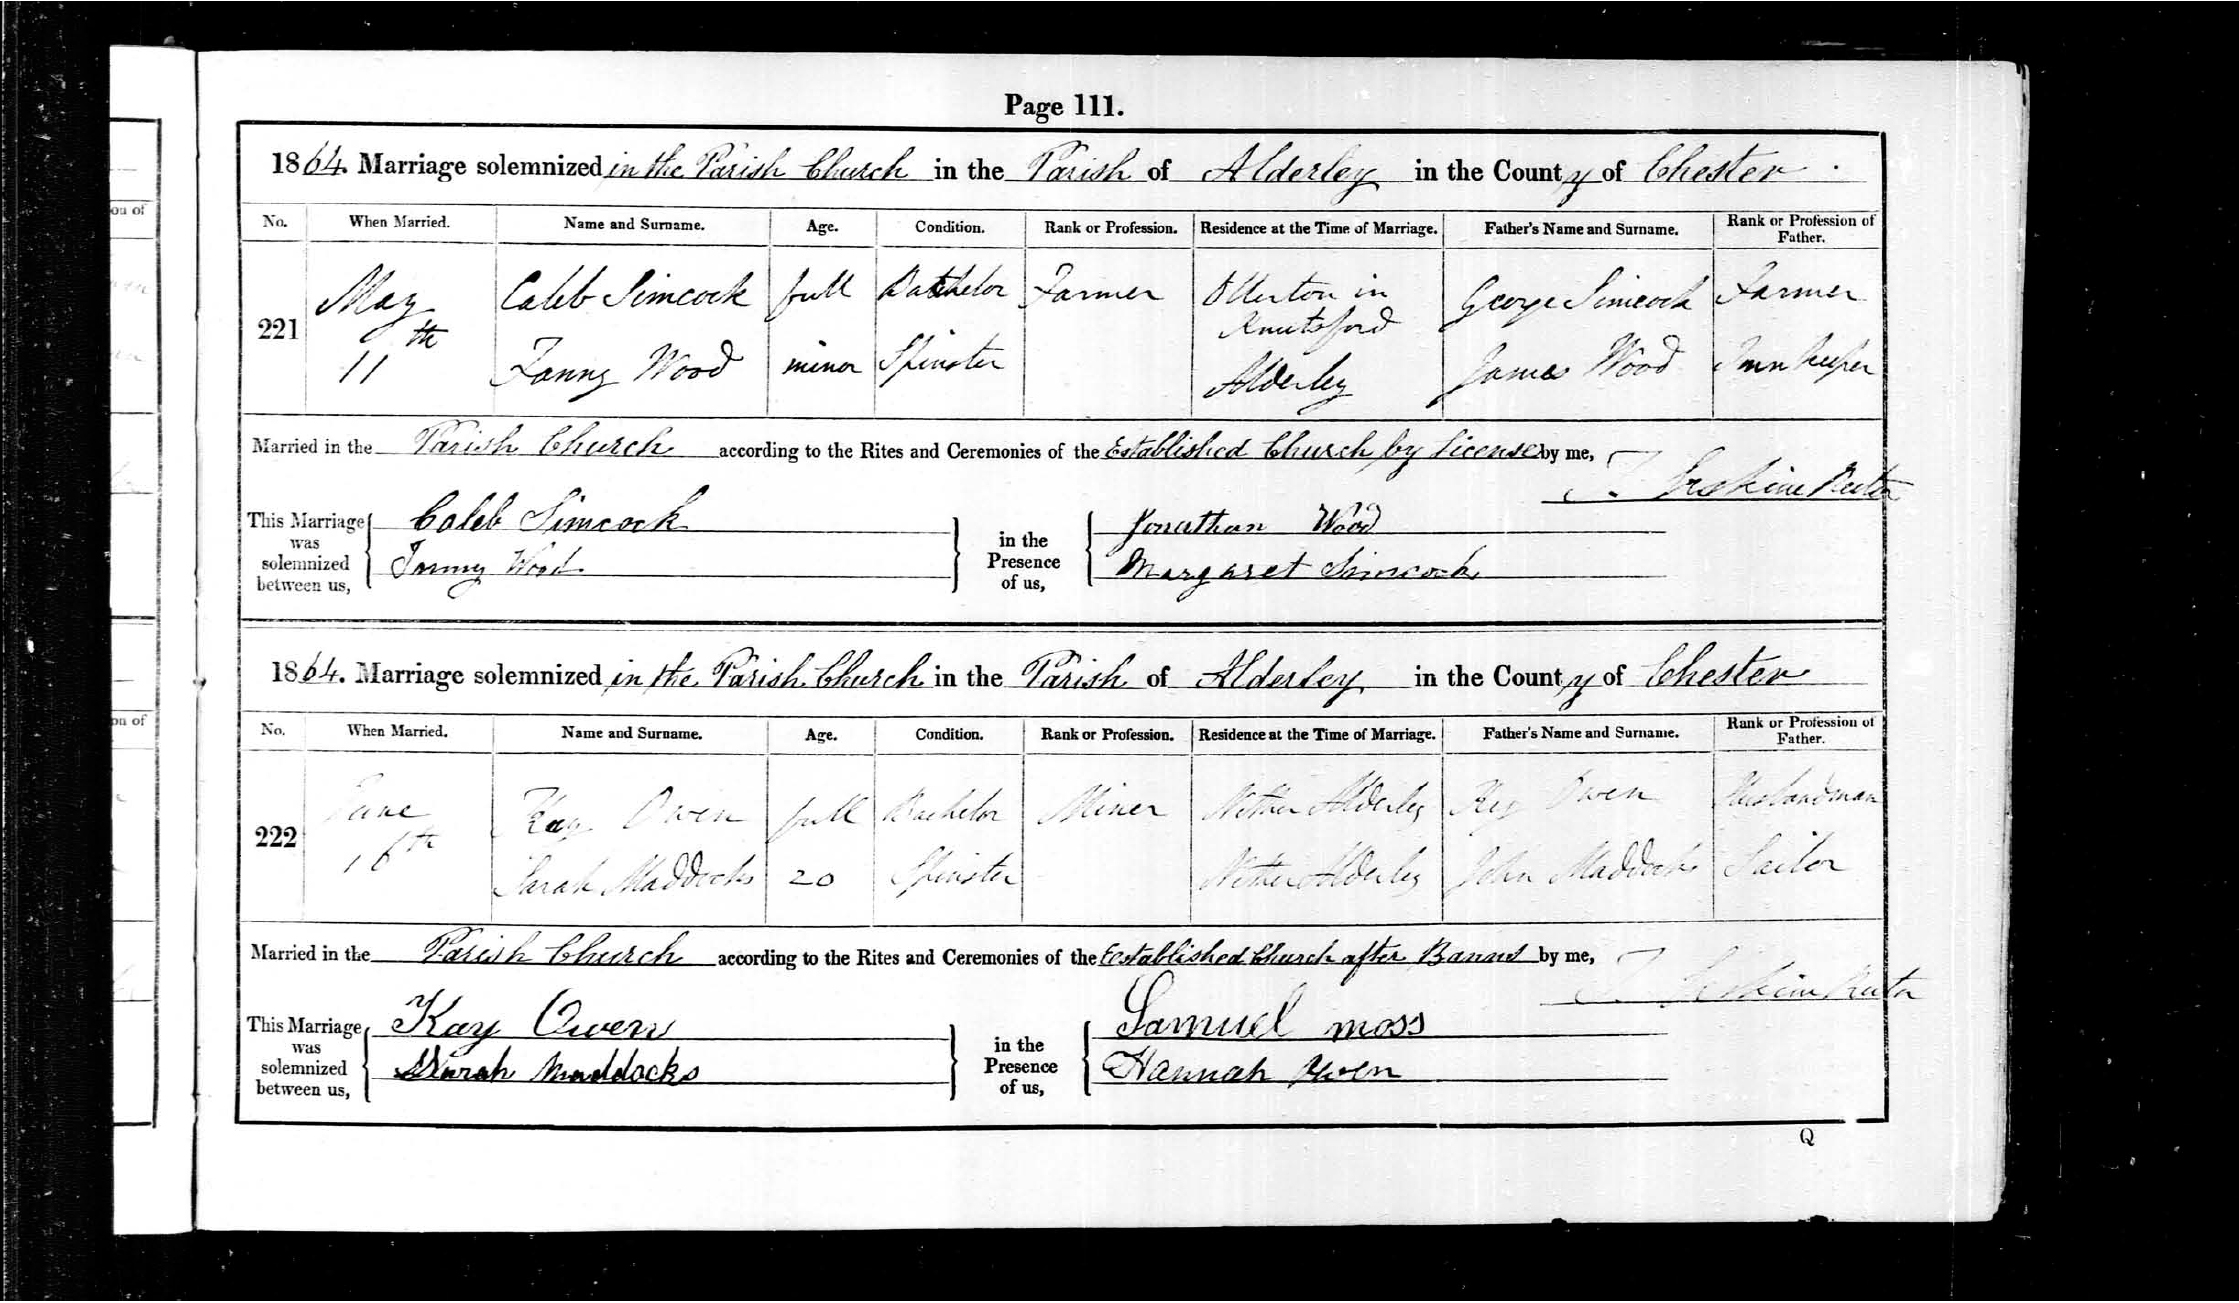 Page 111.
1864. Marriage solemnized in the Parish Church in the Parish of Alderley in the County of Chester.
No. When Married. Name and Surname. Age. Condition. Rank or Profession. Residence at the Time of Marriage. Father's Name and Surname. Rank or Profession of Father.
221 May 11th Caleb Simcock full Batchelor Farmer Ollerton in Knutsford George Simcock Farmer
Fanny Wood minor Spinster Alderley James Wood Innkeeper
Married in the Parish Church according to the Rites and Ceremonies of the Established Church by License by me,
T. Erskine Rector
This Marriage was solemnized between us, Caleb Simcock in the Presence of us, Jonathan Wood
Fanny Wood Margaret Simcock
1864. Marriage solemnized in the Parish Church in the Parish of Alderley in the County of Chester
No. When Married. Name and Surname. Age. Condition. Rank or Profession. Residence at the Time of Marriage. Father's Name and Surname. Rank or Profession of Father.
222 June 16th Kay Owen full Bachelor Miner Nether Alderley Owen Husbandman
Sarah Maddocks 20 Spinster Nether Alderley John Maddocks
Married in the Parish Church according to the Rites and Ceremonies of the Established Church after Banns by me,
T. Erskine Rector
This Marriage was solemnized between us, Kay Owen in the Presence of us, Samuel moss
Sarah Maddocks Hannah Owen
Q
on of
on of